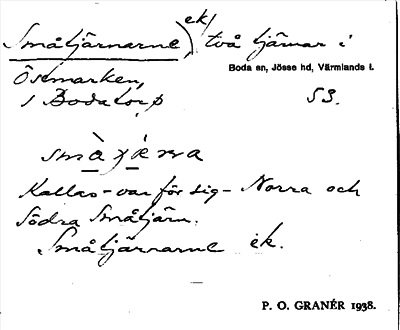 Småtjärnarne, ek, två tjärnar i
Boda sn, Jösse hd, Värmlands l.
Östmarken,
i Boda torp 53.
Kallas - var för sig - Norra och
Södra Småtjärn.
Småtjärnarne ek.
P. O. GRANÉR 1938.